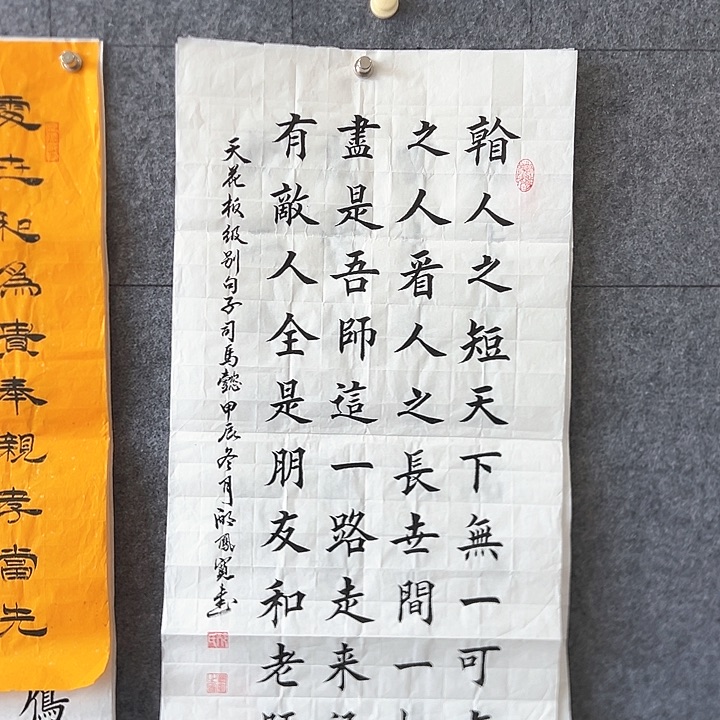 人之短天下無一可
之人看人之長世間一
盡是吾師這一路走来
有敵人全是朋友和老師
天花板级别句子司馬懿甲辰冬月
書
世和為貴奉親孝當先